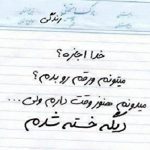 زندگی
خدا اجازه؟
میتونم ورقم رو بدم؟
میدونم هنوز وقت دارم ولی...
دیگه خسته شدم